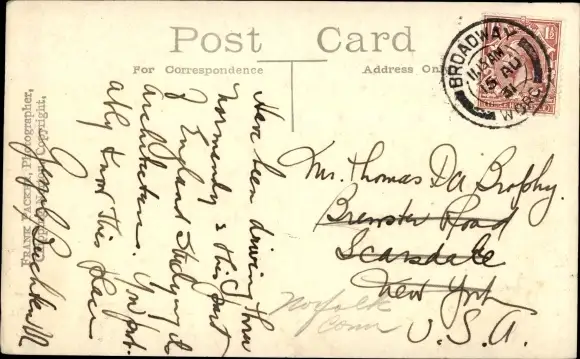 Post Card
For Correspondence
Address Only
BROADWAY
11.15 AM
15 AU
31
WORC.
Have been driving thru
Normandy & this part
of England studying the
architecture. You prob-
ably know this place
FRANK PACKER, Photographer,
Copyright.
Mr. Thomas Brophy.
Brewster Road
Scarsdale
New York
Norfolk
Conn
U.S.A.